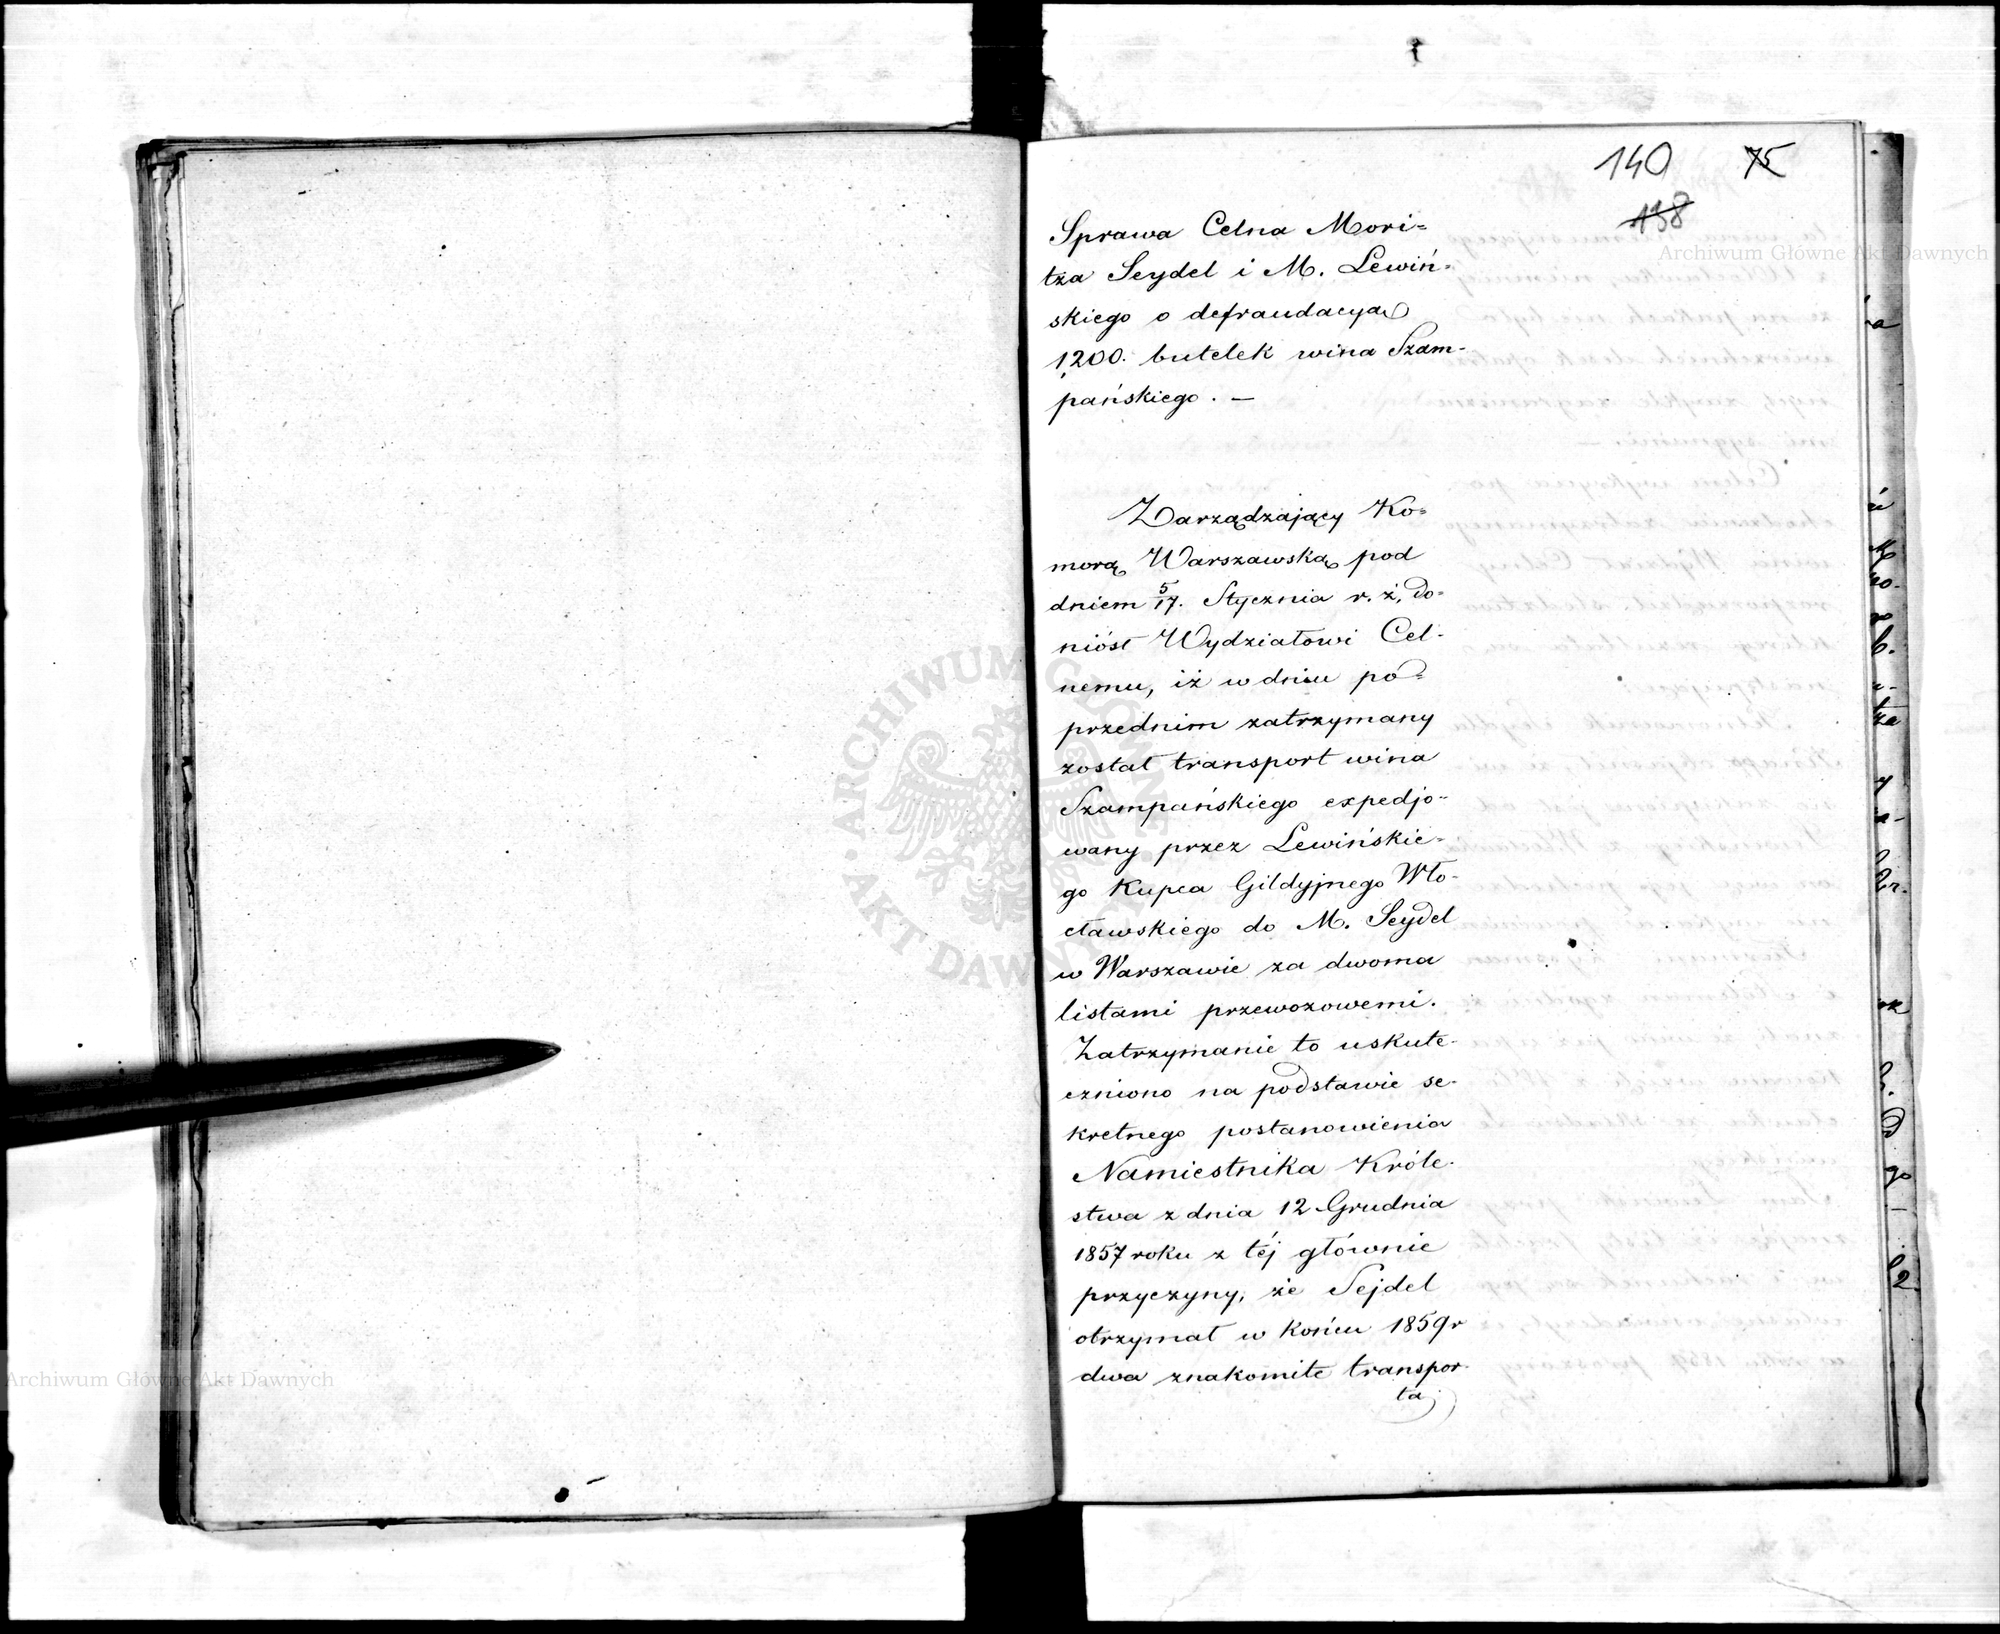 140 75
138
Archiwum Główne Akt Dawnych
Sprawa Celna Mori=
tza Seydel i M. Lewiń=
skiego o defraudacyą
1200. butelek wina Szam-
pańskiego. —
Zarządzający Ko=
morą Warszawską pod
dniem 5/17. Stycznia r. ż. do=
niósł Wydziałowi Cel-
nemu, iż w dniu po=
przednim zatrzymany
został transport wina
Szampańskiego expedjo-
wany przez Lewińskie-
go Kupca Gildyjnego Wło-
cławskiego do M. Seydel
w Warszawie za dwoma
listami przewozowemi.
Zatrzymanie to uskute-
czniono na podstawie se-
kretnego postanowienia
Namiestnika Króle-
stwa z dnia 12 Grudnia
1857 roku z téj głównie
przyczyny, że Sejdel
otrzymał w końcu 1859 r
dwa znakomite transpor-
ta
ARCHIWUM GŁÓWNE AKT DAWNYCH
Archiwum Główne Akt Dawnych